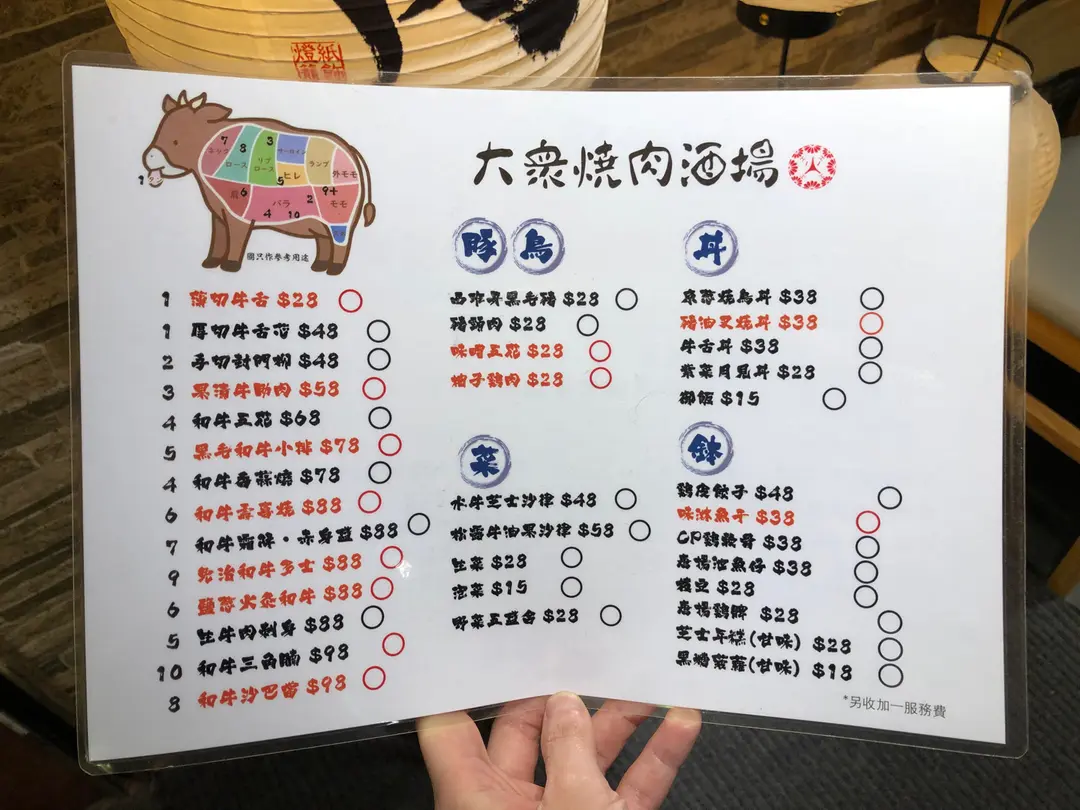 大衆焼肉酒場
7
8
3
サーロイン
ネック
ロース
リブ
ロース
ランプ
5
ヒレ
外モモ
1
タン
前
6
バラ
2
9+
モモ
4
10
圖只作參考用途
1 薄切牛舌 $28
1 厚切牛舌芯 $48
2 厚切封門柳 $48
3 黑漬牛肋肉 $58
4 和牛五花 $68
5 黑毛和牛小排 $78
4 和牛香蒜燒 $78
6 和牛壽喜燒 $88
7 和牛霜降・赤身盛 $88
9 免治和牛多士 $88
6 鹽蔥火炙和牛 $88
5 生牛肉刺身 $88
10 和牛三角腩 $98
8 和牛沙巴當 $98
豚 鳥
西班牙黑毛豬 $28
豬頸肉 $28
味噌五花 $28
柚子鷄肉 $28
菜
水牛芝士沙律 $48
松露牛油果沙律 $58
生菜 $28
泡菜 $15
野菜五盛合 $28
丼
京蔥燒鳥丼 $38
豬油叉燒丼 $38
牛舌丼 $38
紫菜月見丼 $28
御飯 $15
鉢
鷄皮餃子 $48
味淋魚干 $38
CP鷄軟骨 $38
唐揚池魚仔 $38
枝豆 $28
唐揚鷄脾 $28
芝士年糕(甘味) $28
黑糖菠蘿(甘味) $18
*另收加一服務費